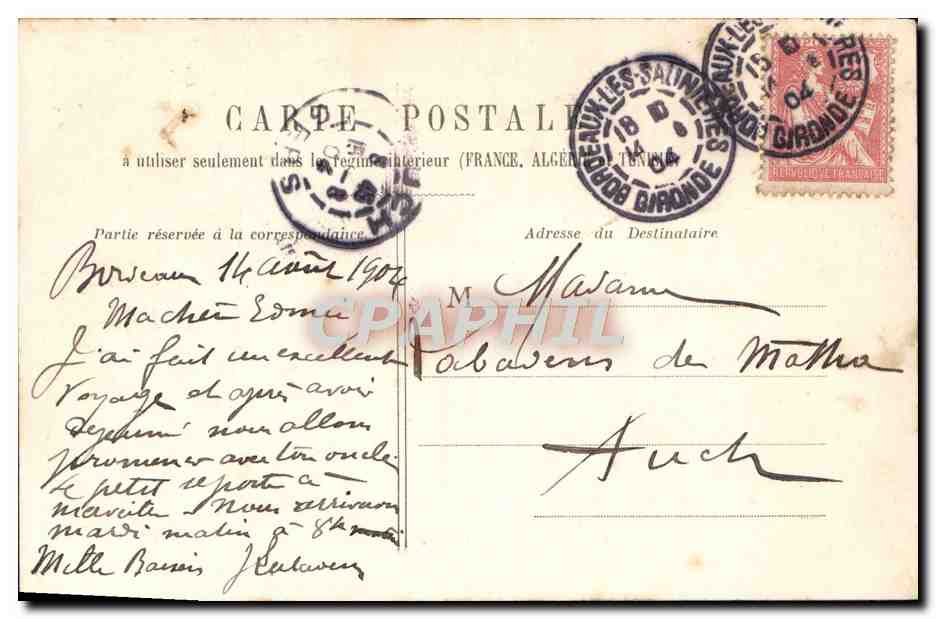 CARTE POSTALE
à utiliser seulement dans le régime intérieur (FRANCE, ALGÉRIE et TUNISIE)
BORDEAUX-LES-SALINIÈRES
18
14 8
04
GIRONDE
BORDEAUX-LES-SALINIÈRES
18
04
GIRONDE
RÉPUBLIQUE FRANÇAISE
AUCH
GERS
Partie réservée à la correspondance
Bordeaux 14 août 1904
Ma chère Edma
J'ai fait un excellent
voyage et après avoir
déjeuné nous allons
promener avec ton oncle
Le petit se porte à
merveille - Nous arriverons
mardi matin à 8h
Mille Baisers
Adresse du Destinataire
M Madame
de Matha
Auch
CPAPHIL